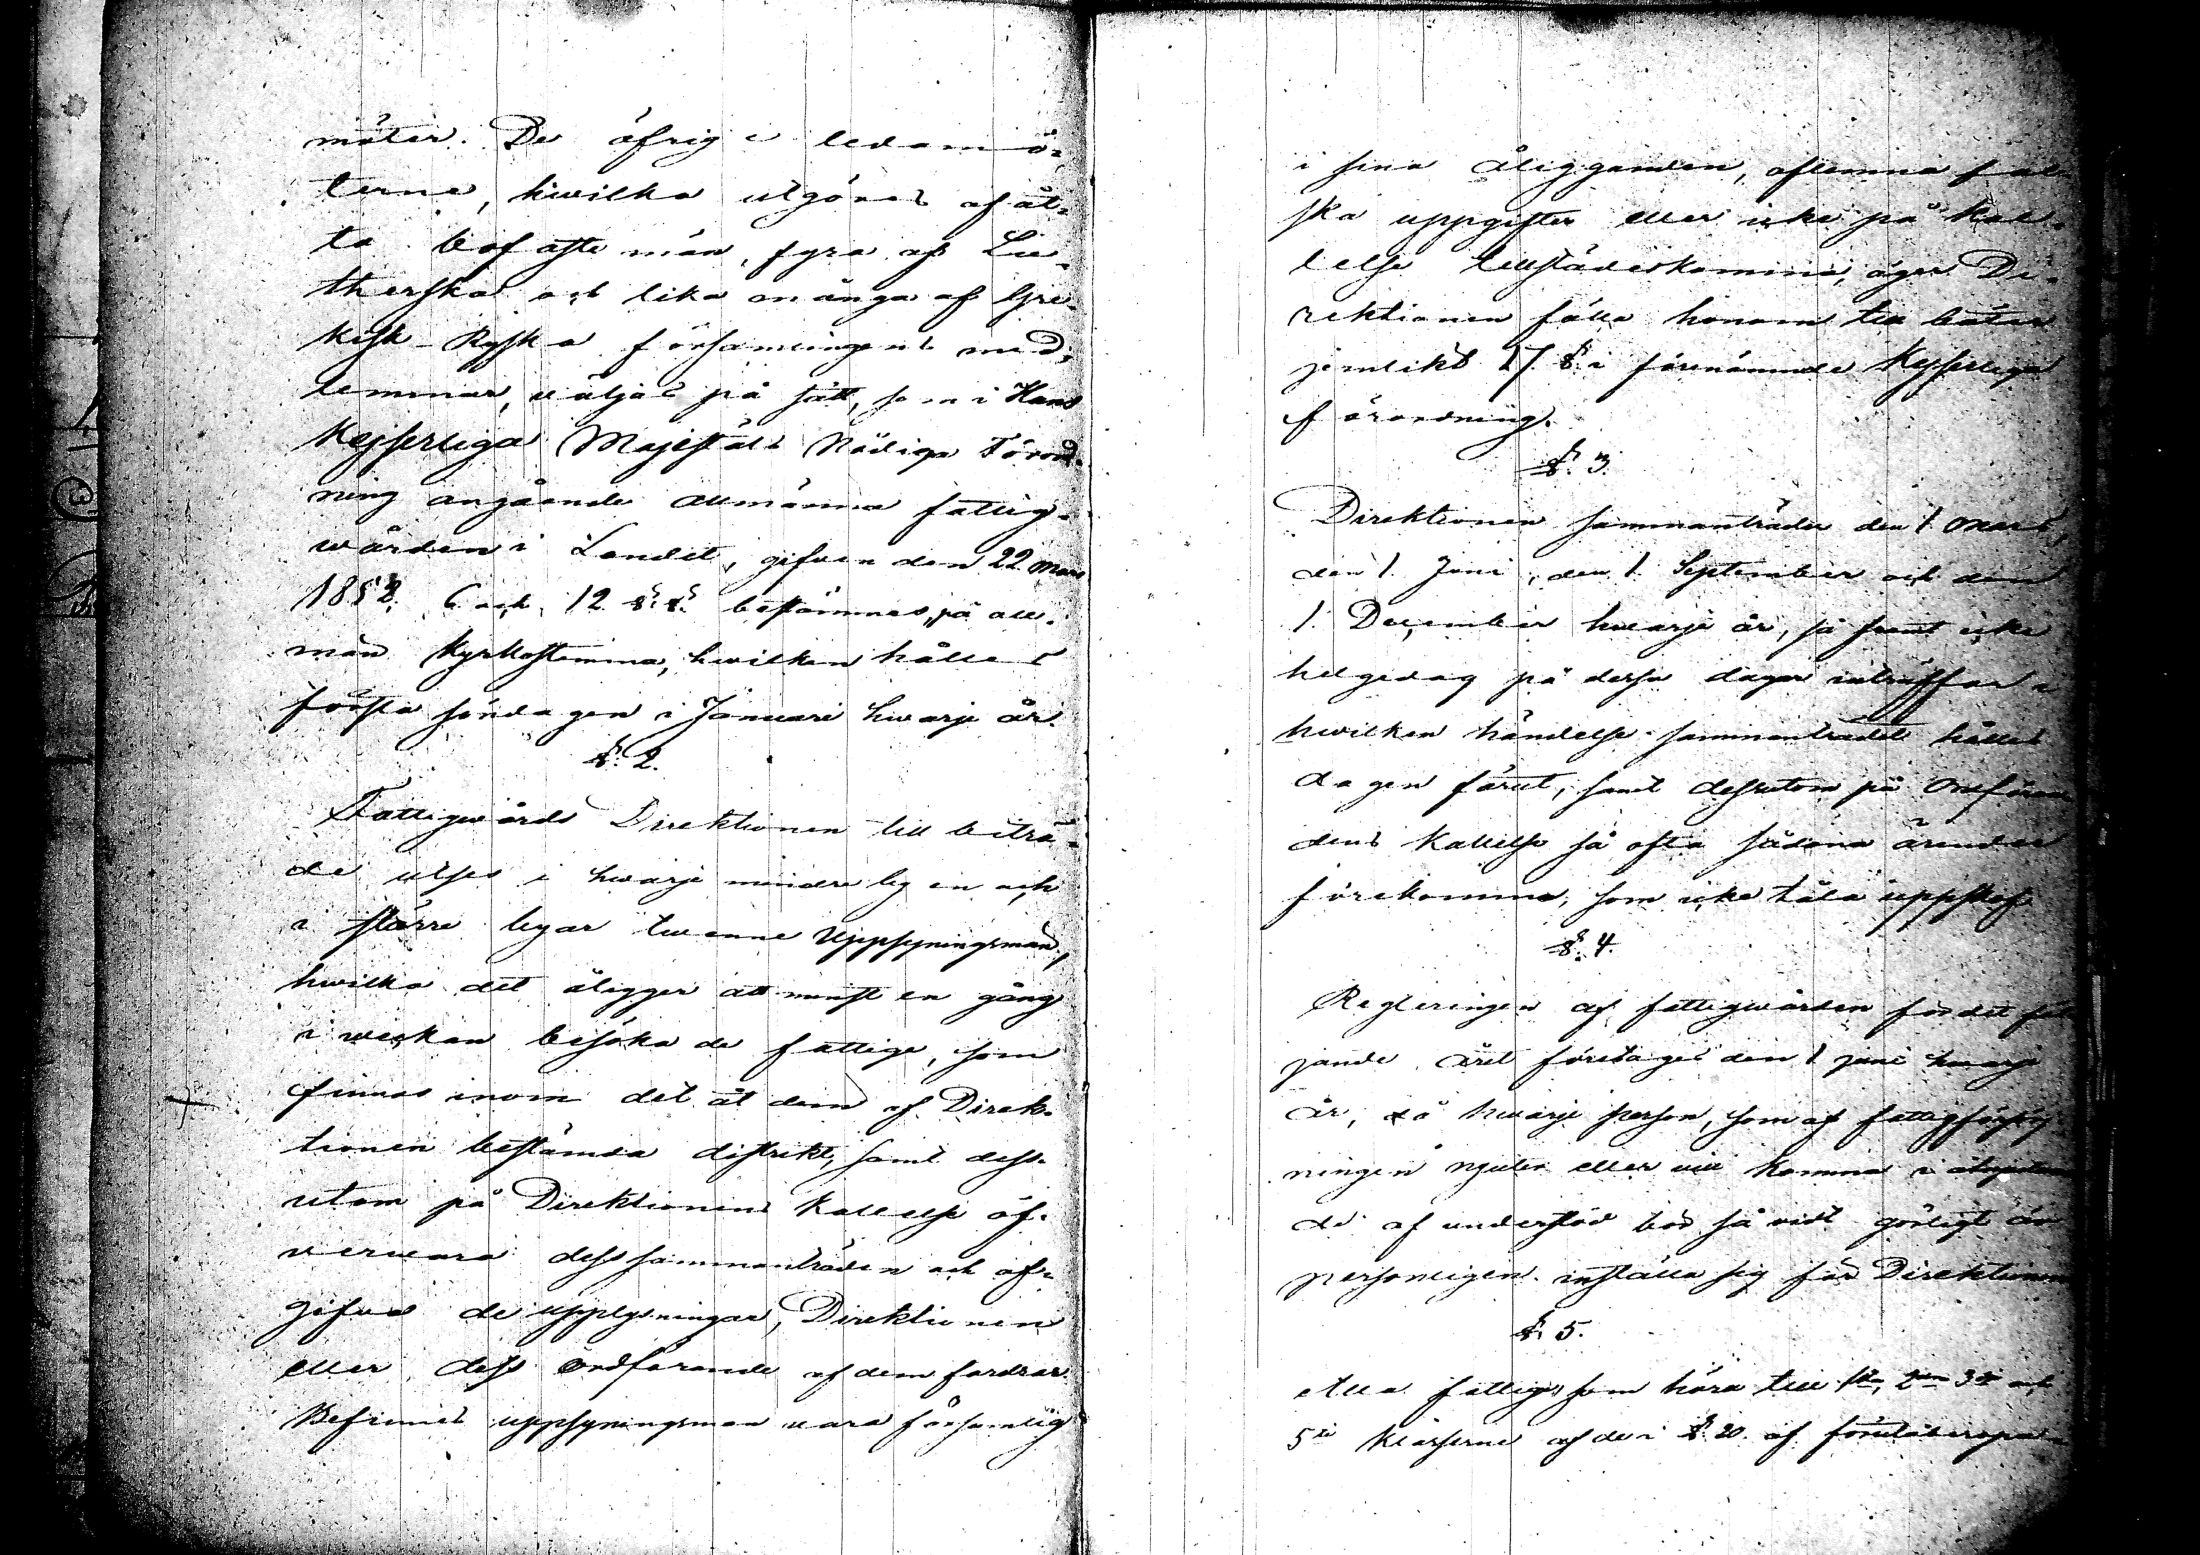 möter. De öfrige ledamö-
terne, hwilka utgöras af åt-
ta bofaste män, fyra af Lu-
therska och lika många af Gre-
kisk-Ryska församlingens med-
lemmar, wäljas på sätt, som i Hans
Kejserliga Majestäts Nådiga Förord-
ning angående allmänna fattig-
wården i Landet, gifven den 22 Mars
1852, 6 och 12 §.§. bestämmes, på all-
män Kyrkostämma, hwilken hålles
första söndagen i Januari hwarje år.
§. 2.
Fattigwårds Direktionen till biträ-
de utses i hwarje mindre by en och
i större byar twenne Uppsyningsmän,
hwilka det åligger att minst en gång
i weckan besöka de fattige, som
finnas inom det åt dem af Direk-
tionen bestämda distrikt, samt dess-
utom på Direktionens kallelse öf-
verwara dess sammanträden och af-
gifva de upplysningar, Direktionen
eller dess Ordförande af dem fordrar.
Befinnes uppsyningsman vara försumlig
i sina åligganden, aflemna fal-
ska uppgifter eller icke på kal-
lelse tillstädeskomma, äger Di-
rektionen fälla honom till böter
jemlikt 17 §. i förenämnde Kejserliga
förordning.
§. 3.
Direktionen sammanträder den 1 Mars,
den 1 Juni, den 1 September och den
1 December hwarje år, så framt icke
helgedag på dessa dagar inträffar i
hwilken händelse sammanträdet hålles
dagen förut, samt dessutom på Ordföran-
dens kallelse så ofta sådana ärender
förekomma, som icke tåla uppskof.
§. 4.
Regleringen af fattigwården för det föl-
jande året företages den 1 juni hwarje
år, då hwarje person, som af fattigförsörj-
ningen njuter eller will komma i åtnjutan-
de af understöd bör så widt görligt är
personligen inställa sig för Direktionen
§. 5.
Alla fattige, som höra till 1sta, 2dra 3dje och
5te klasserne af de i §. 20. af